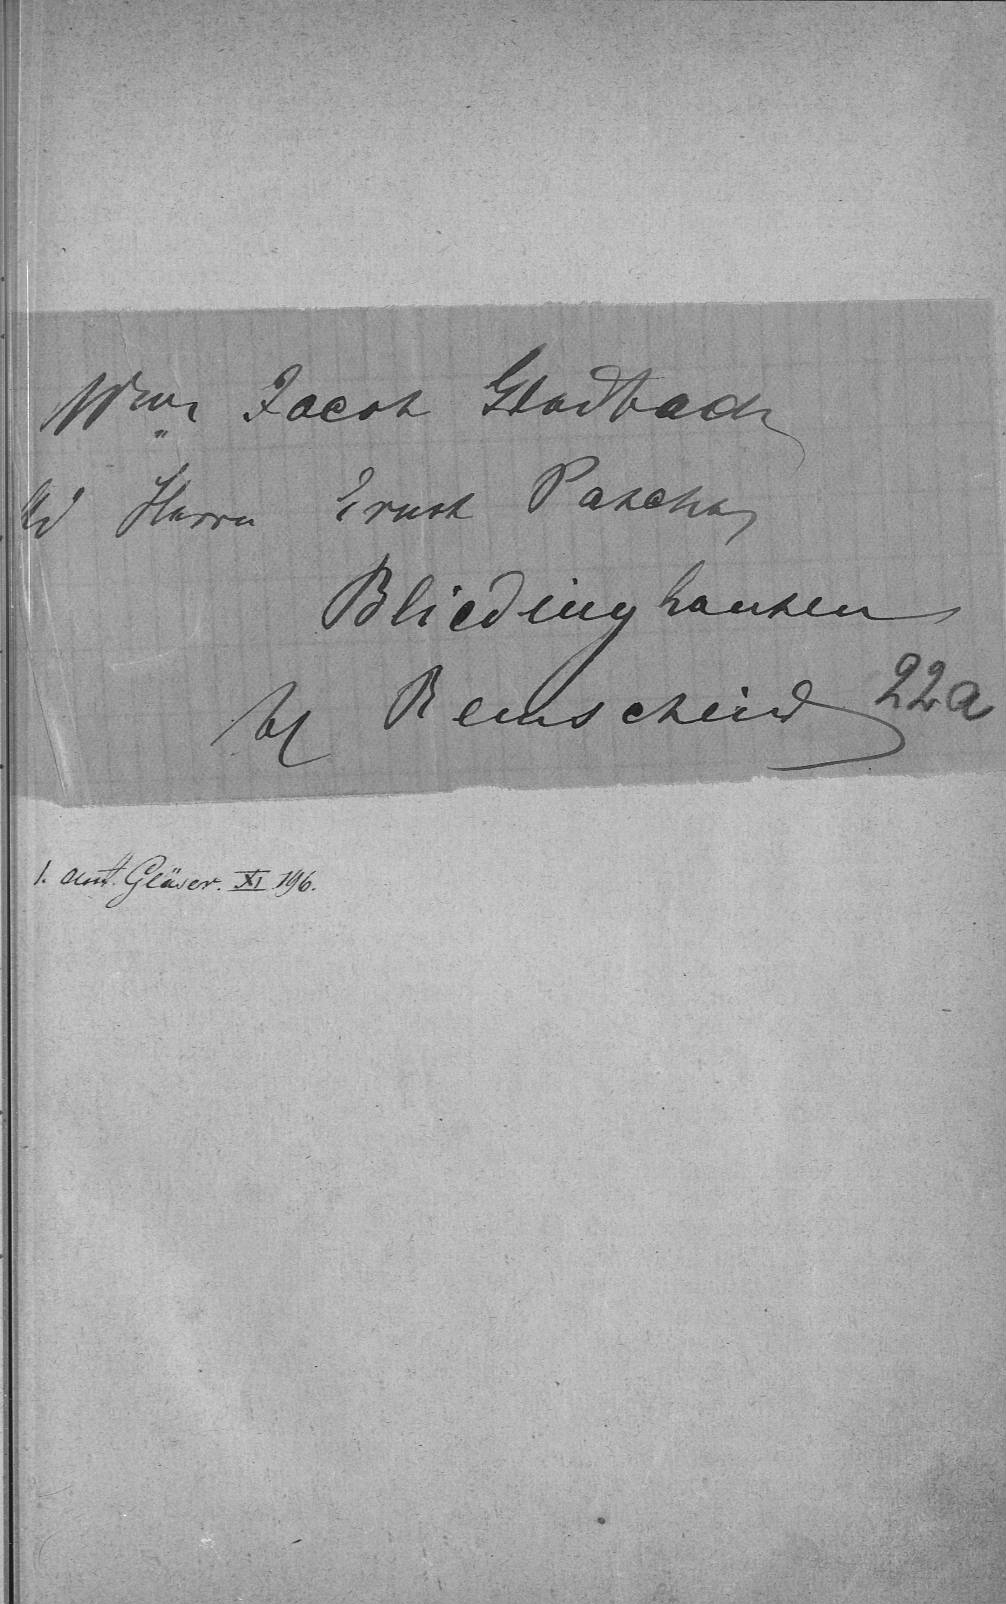 Wwe Jacob Gladbach
Herrn Ernst Pasche
Bliedinghausen
bei Remscheid
22a
1. aut. Gläser. XI 196.